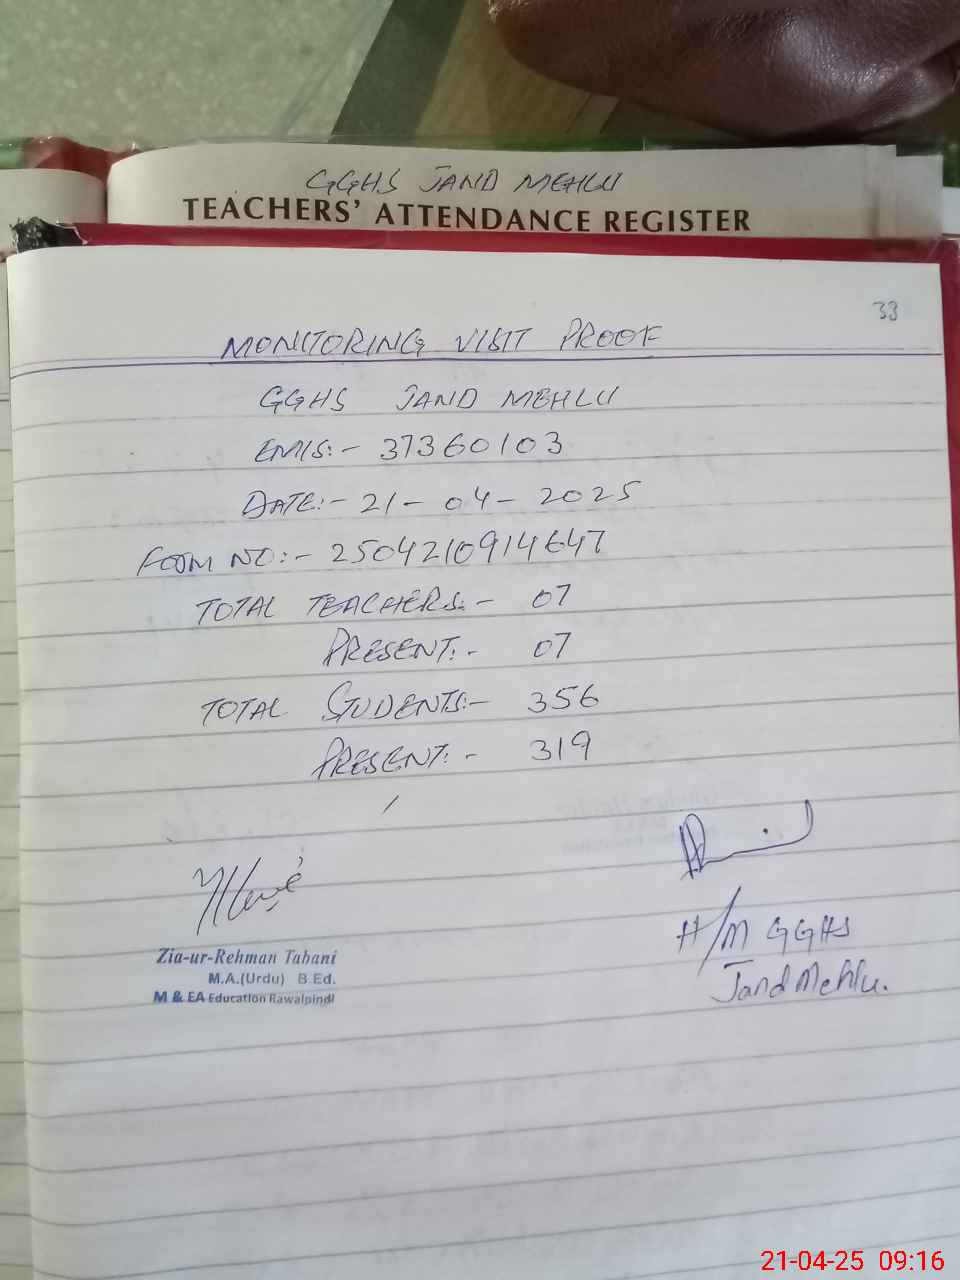 GGHS JAND MEHLU
TEACHERS' ATTENDANCE REGISTER
33
MONITORING VISIT PROOF
GGHS JAND MEHLU
EMIS:- 37360103
DATE:- 21-04-2025
FORM NO:- 2504210914647
TOTAL TEACHERS:- 07
PRESENT:- 07
TOTAL STUDENTS:- 356
PRESENT:- 319
Zia-ur-Rehman Tabani
M.A.(Urdu) B.Ed.
M & EA Education Rawalpindi
H/M GGHS
Jand Mehlu.
21-04-25 09:16